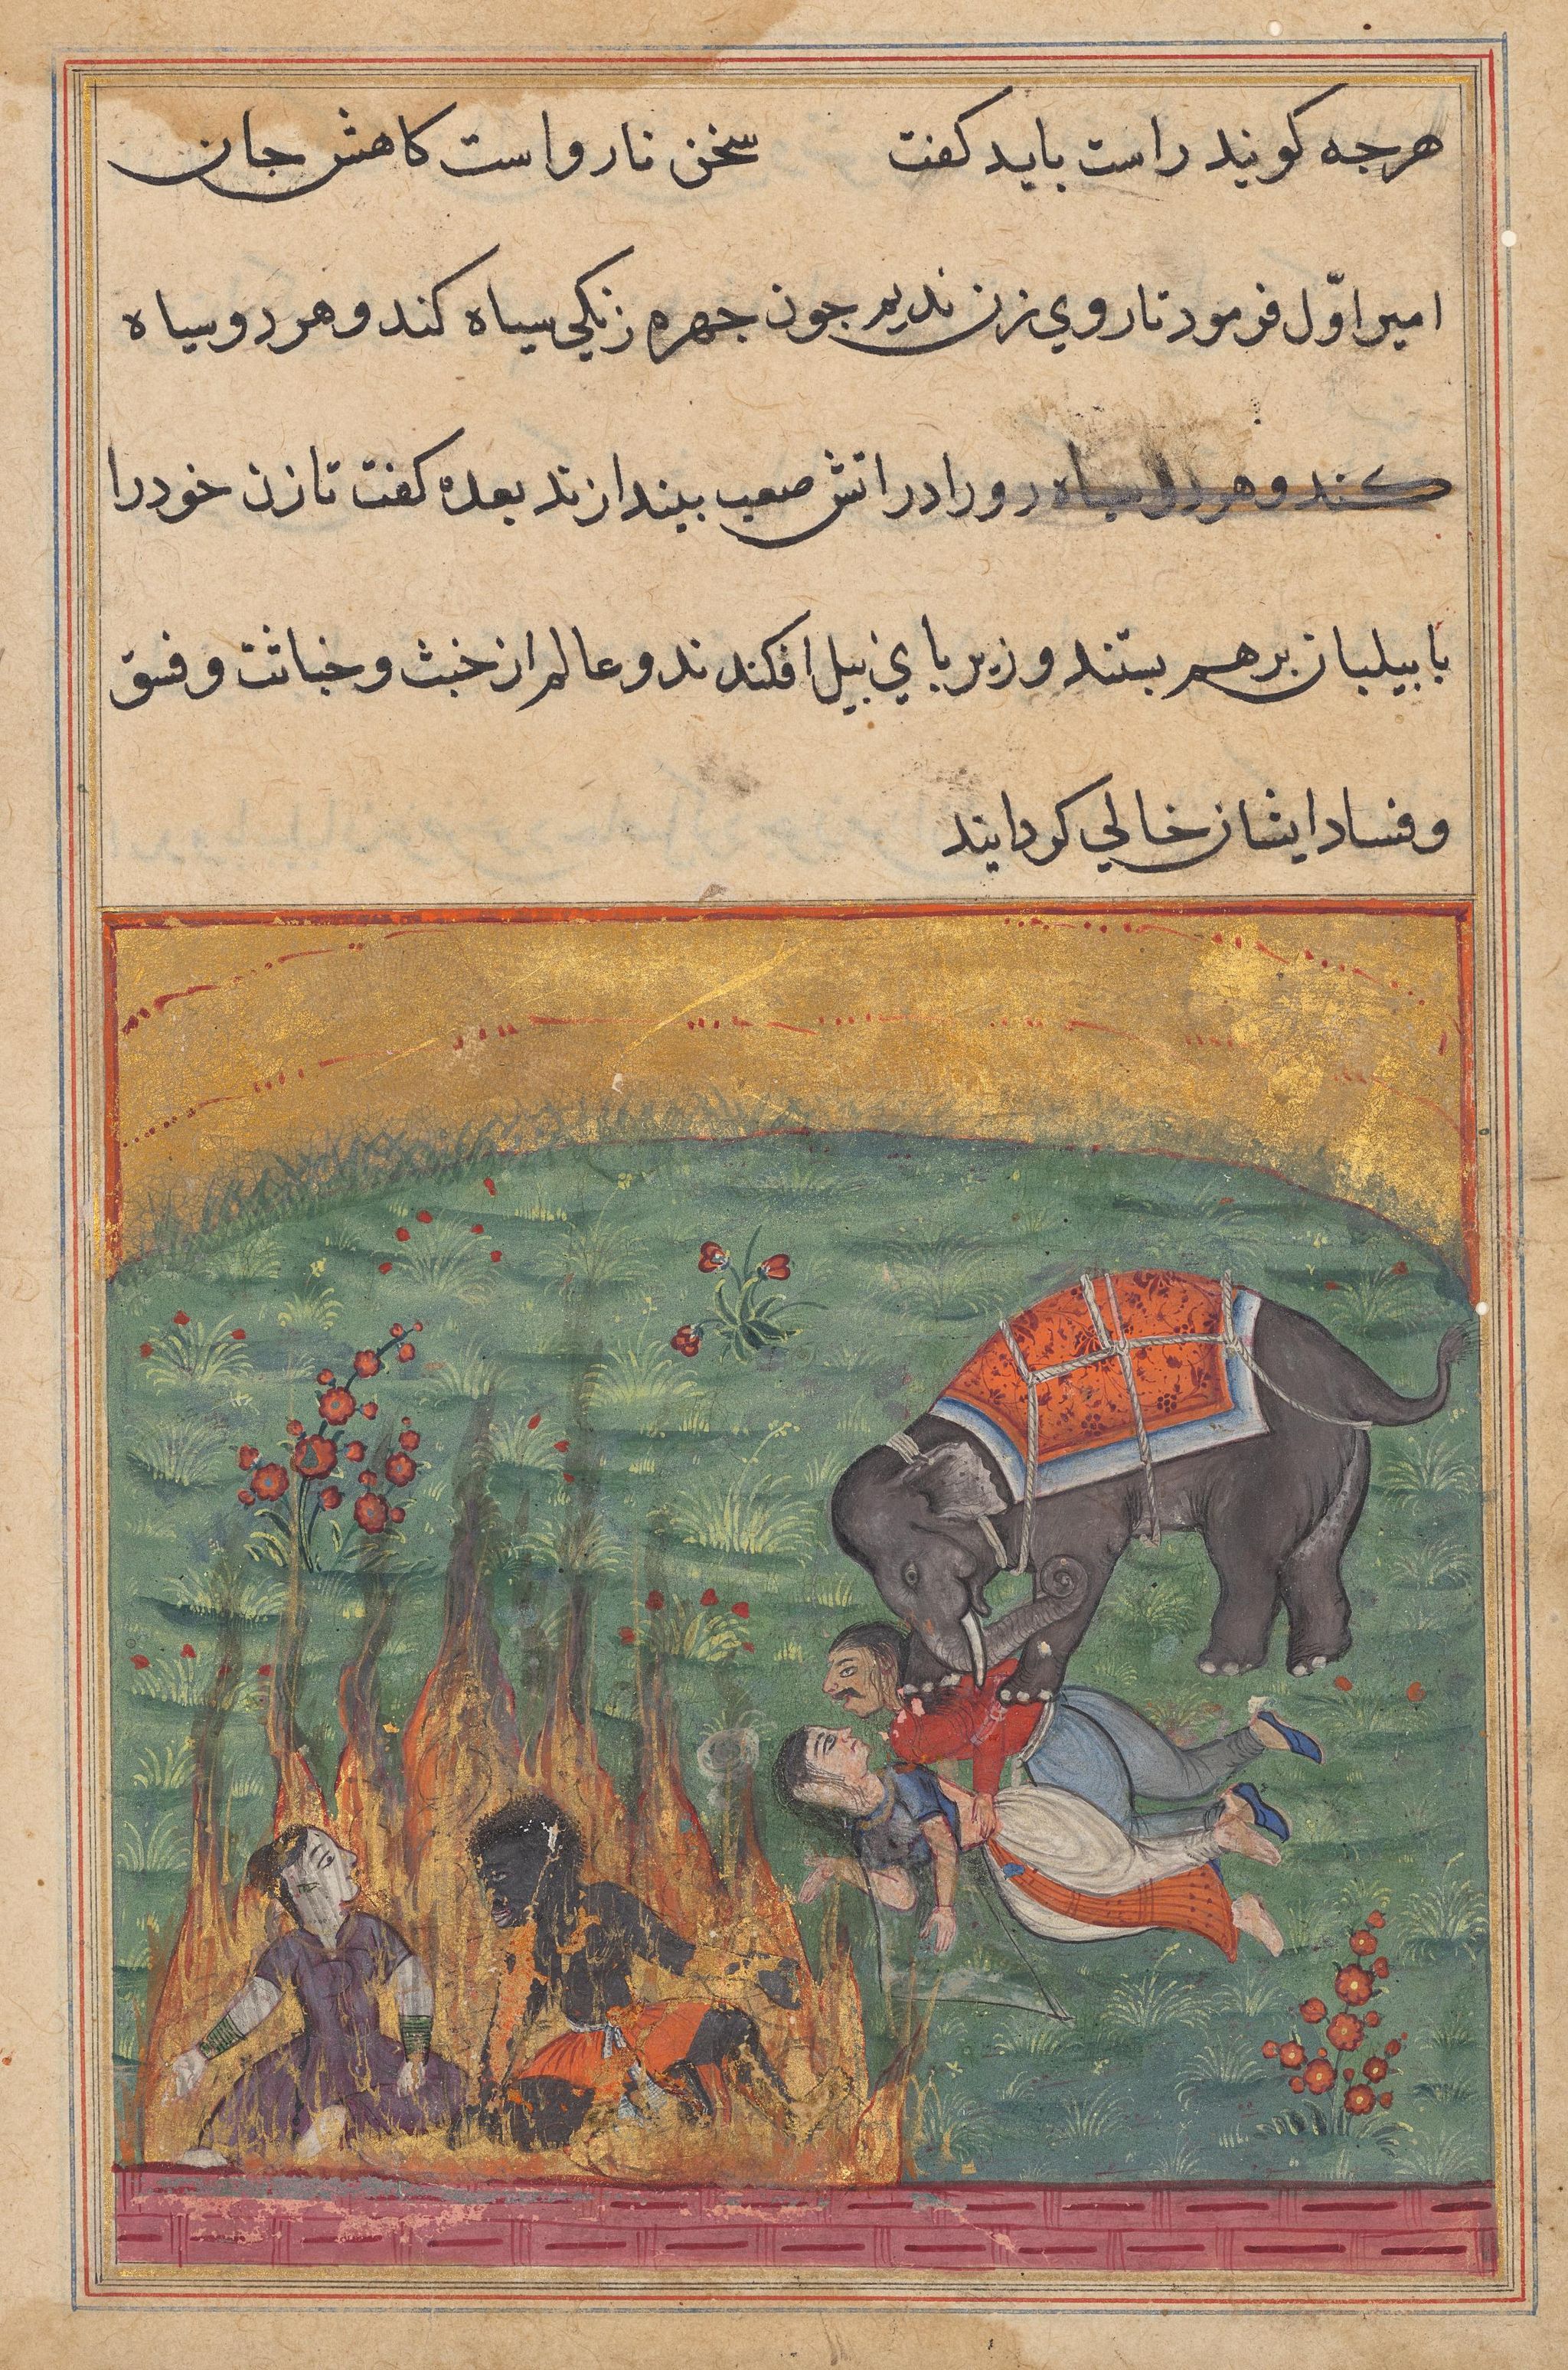 هرجه کویند راست باید کفت سخن ناروا است کاهش جان
امیر اوّل فرمود تا روي زن ندیم جون جهره زنکي سیاه کند و هر دو سیاه
کند و هر دو سیاه رو را در اتش صعب بیندازند بعده کفت تا زن خود را
با بیلبان بر هم بستند و زیر باي بیل افکندند و عالم از خبث و خباثت و فسق
و فساد ایشان خالي کردایند